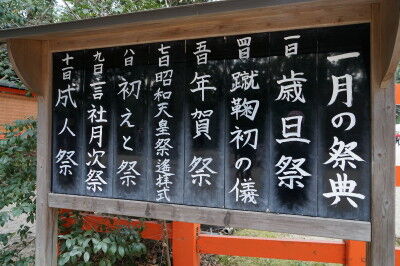 一月の祭典
一日 歳旦祭
四日 蹴鞠初の儀
五日 年賀祭
七日 昭和天皇祭遙拝式
八日 初えと祭
九日 言社月次祭
十日 成人祭